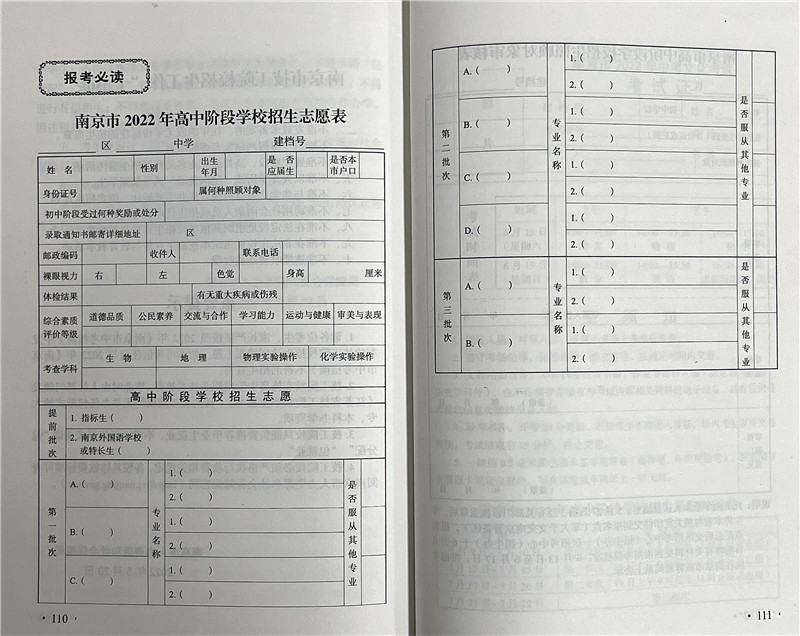 报考必读
南京市 2022 年高中阶段学校招生志愿表
区 中学 建档号
姓 名 性别 出生年月 是 否应届生 是否本市户口
身份证号 属何种照顾对象
初中阶段受过何种奖励或处分
录取通知书邮寄详细地址 区
邮政编码 收件人 联系电话
裸眼视力 右 左 色觉 身高 厘米
体检结果 有无重大疾病或伤残
综合素质评价等级 道德品质 公民素养 交流与合作 学习能力 运动与健康 审美与表现
考查学科 生 物 地 理 物理实验操作 化学实验操作
高中阶段学校招生志愿
提前批次
1. 指标生（ ）
2. 南京外国语学校
或特长生（ ）
第一批次
A.（ ）
B.（ ）
C.（ ）
专业名称
1.（ ）
2.（ ）
1.（ ）
2.（ ）
1.（ ）
2.（ ）
是否服从其他专业
· 110 ·
第二批次
A.（ ）
B.（ ）
C.（ ）
D.（ ）
专业名称
1.（ ）
2.（ ）
1.（ ）
2.（ ）
1.（ ）
2.（ ）
1.（ ）
2.（ ）
是否服从其他专业
第三批次
A.（ ）
B.（ ）
专业名称
1.（ ）
2.（ ）
1.（ ）
2.（ ）
是否服从其他专业
· 111 ·